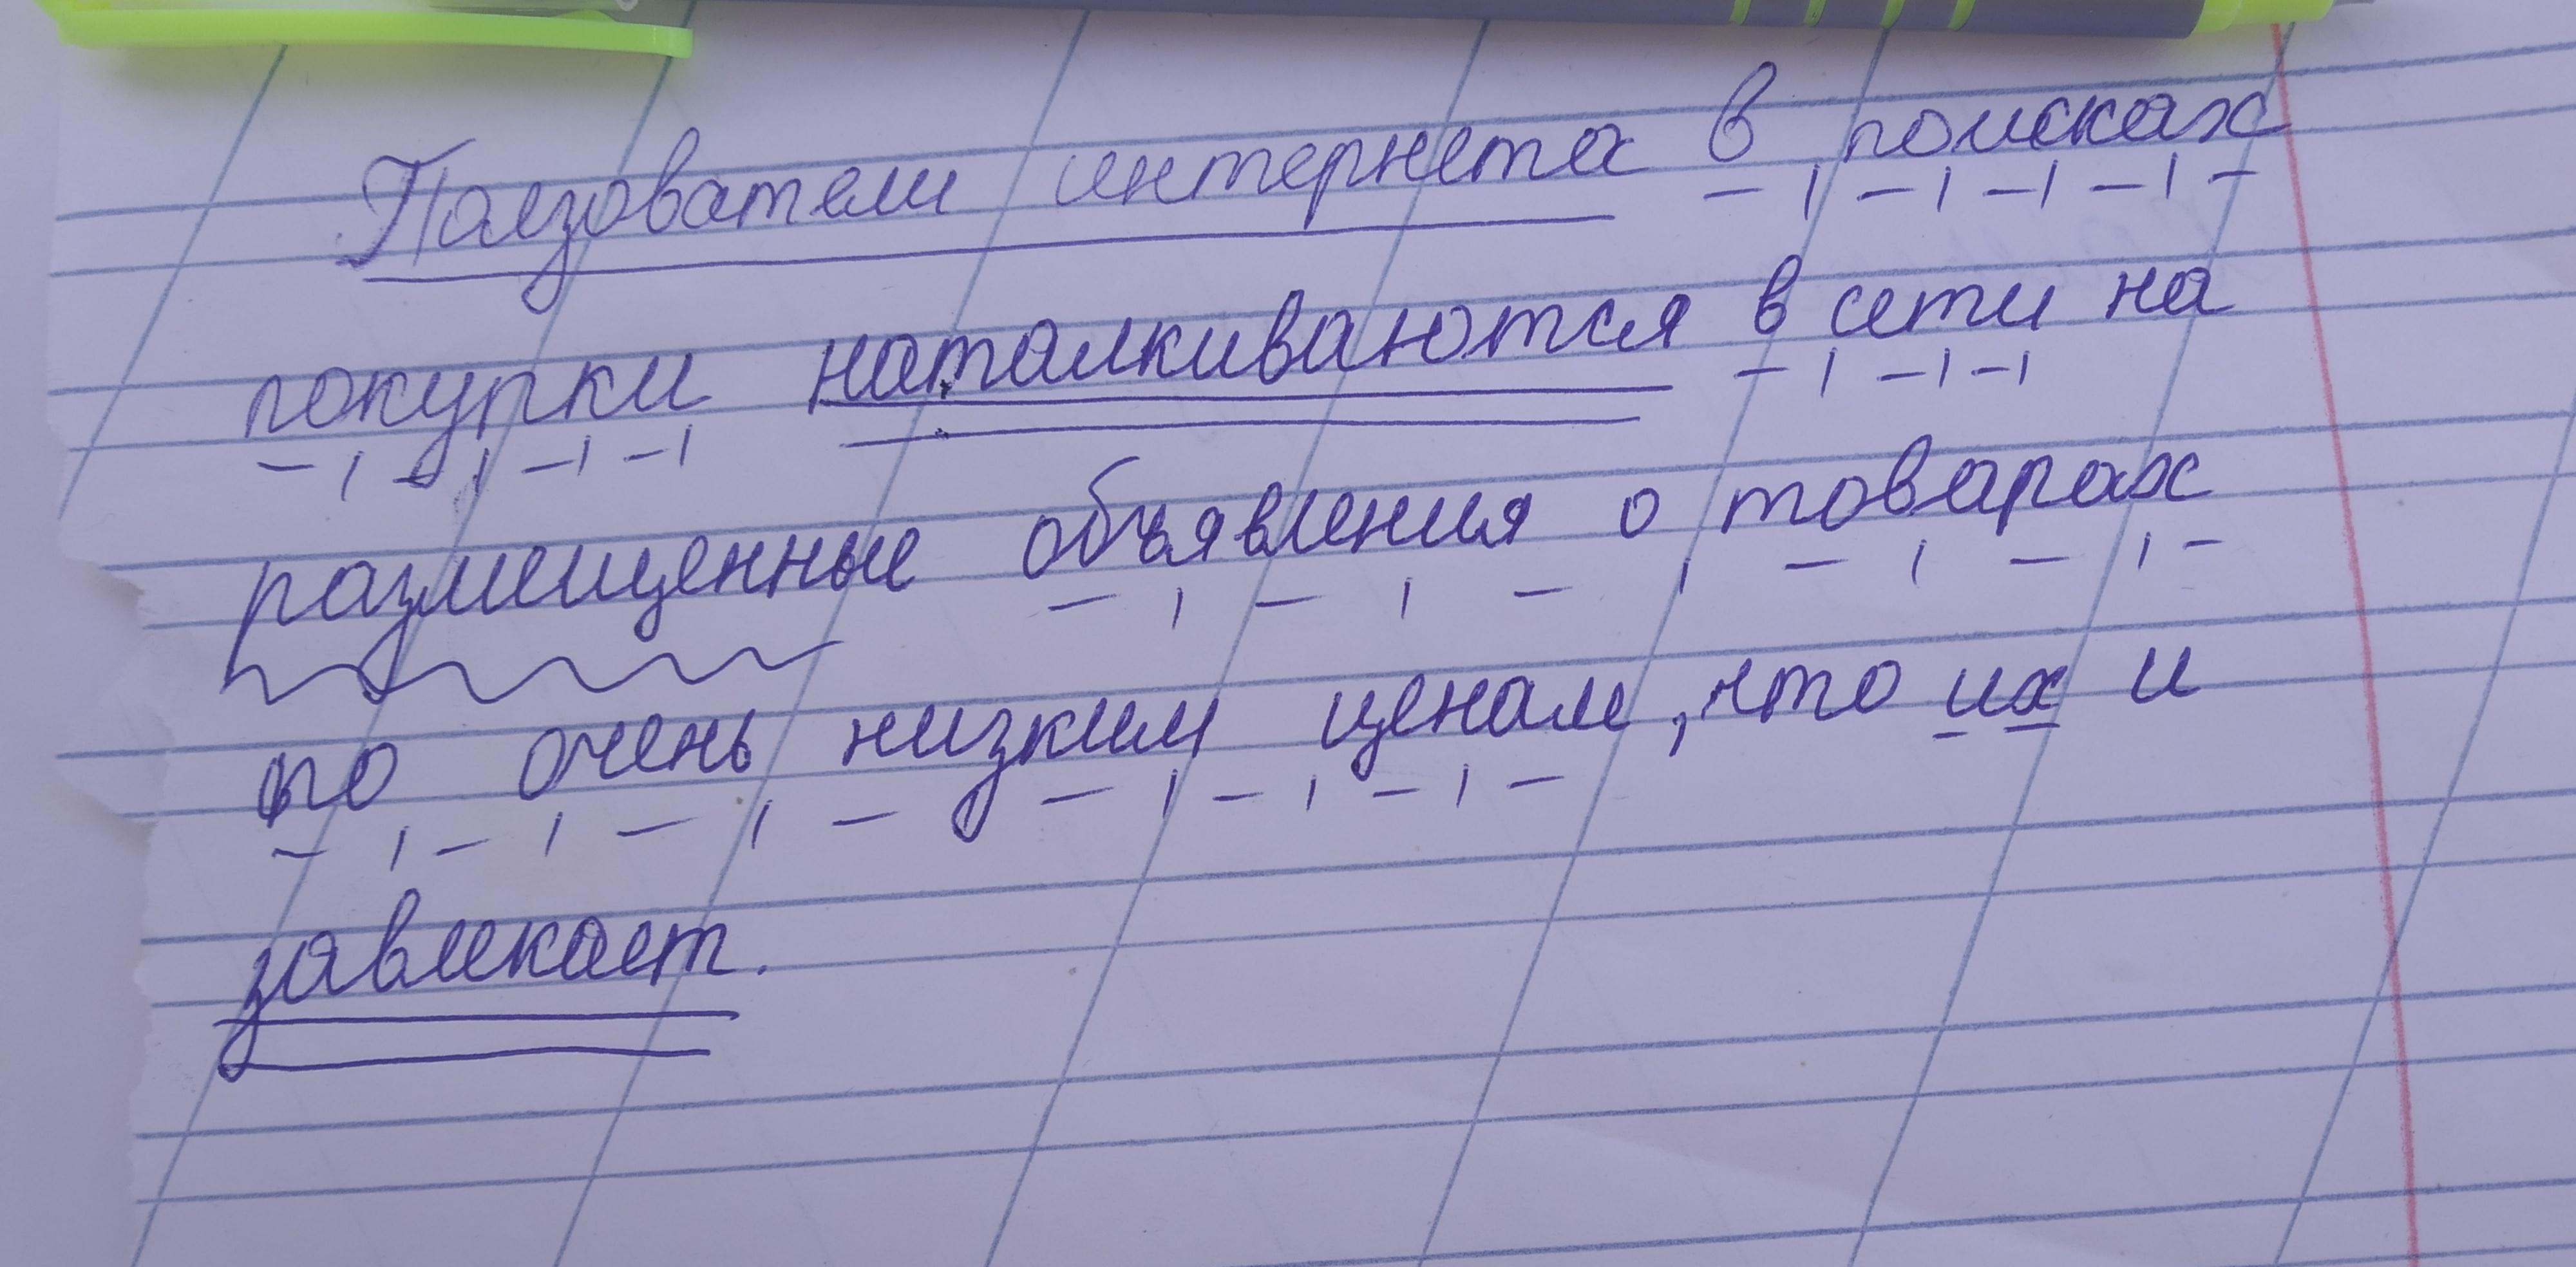 Ползователи интернета в поисках
покупки наталкиваются в сети на
размещенные объявления о товарах
по очень низким ценам, что их и
завлекает.